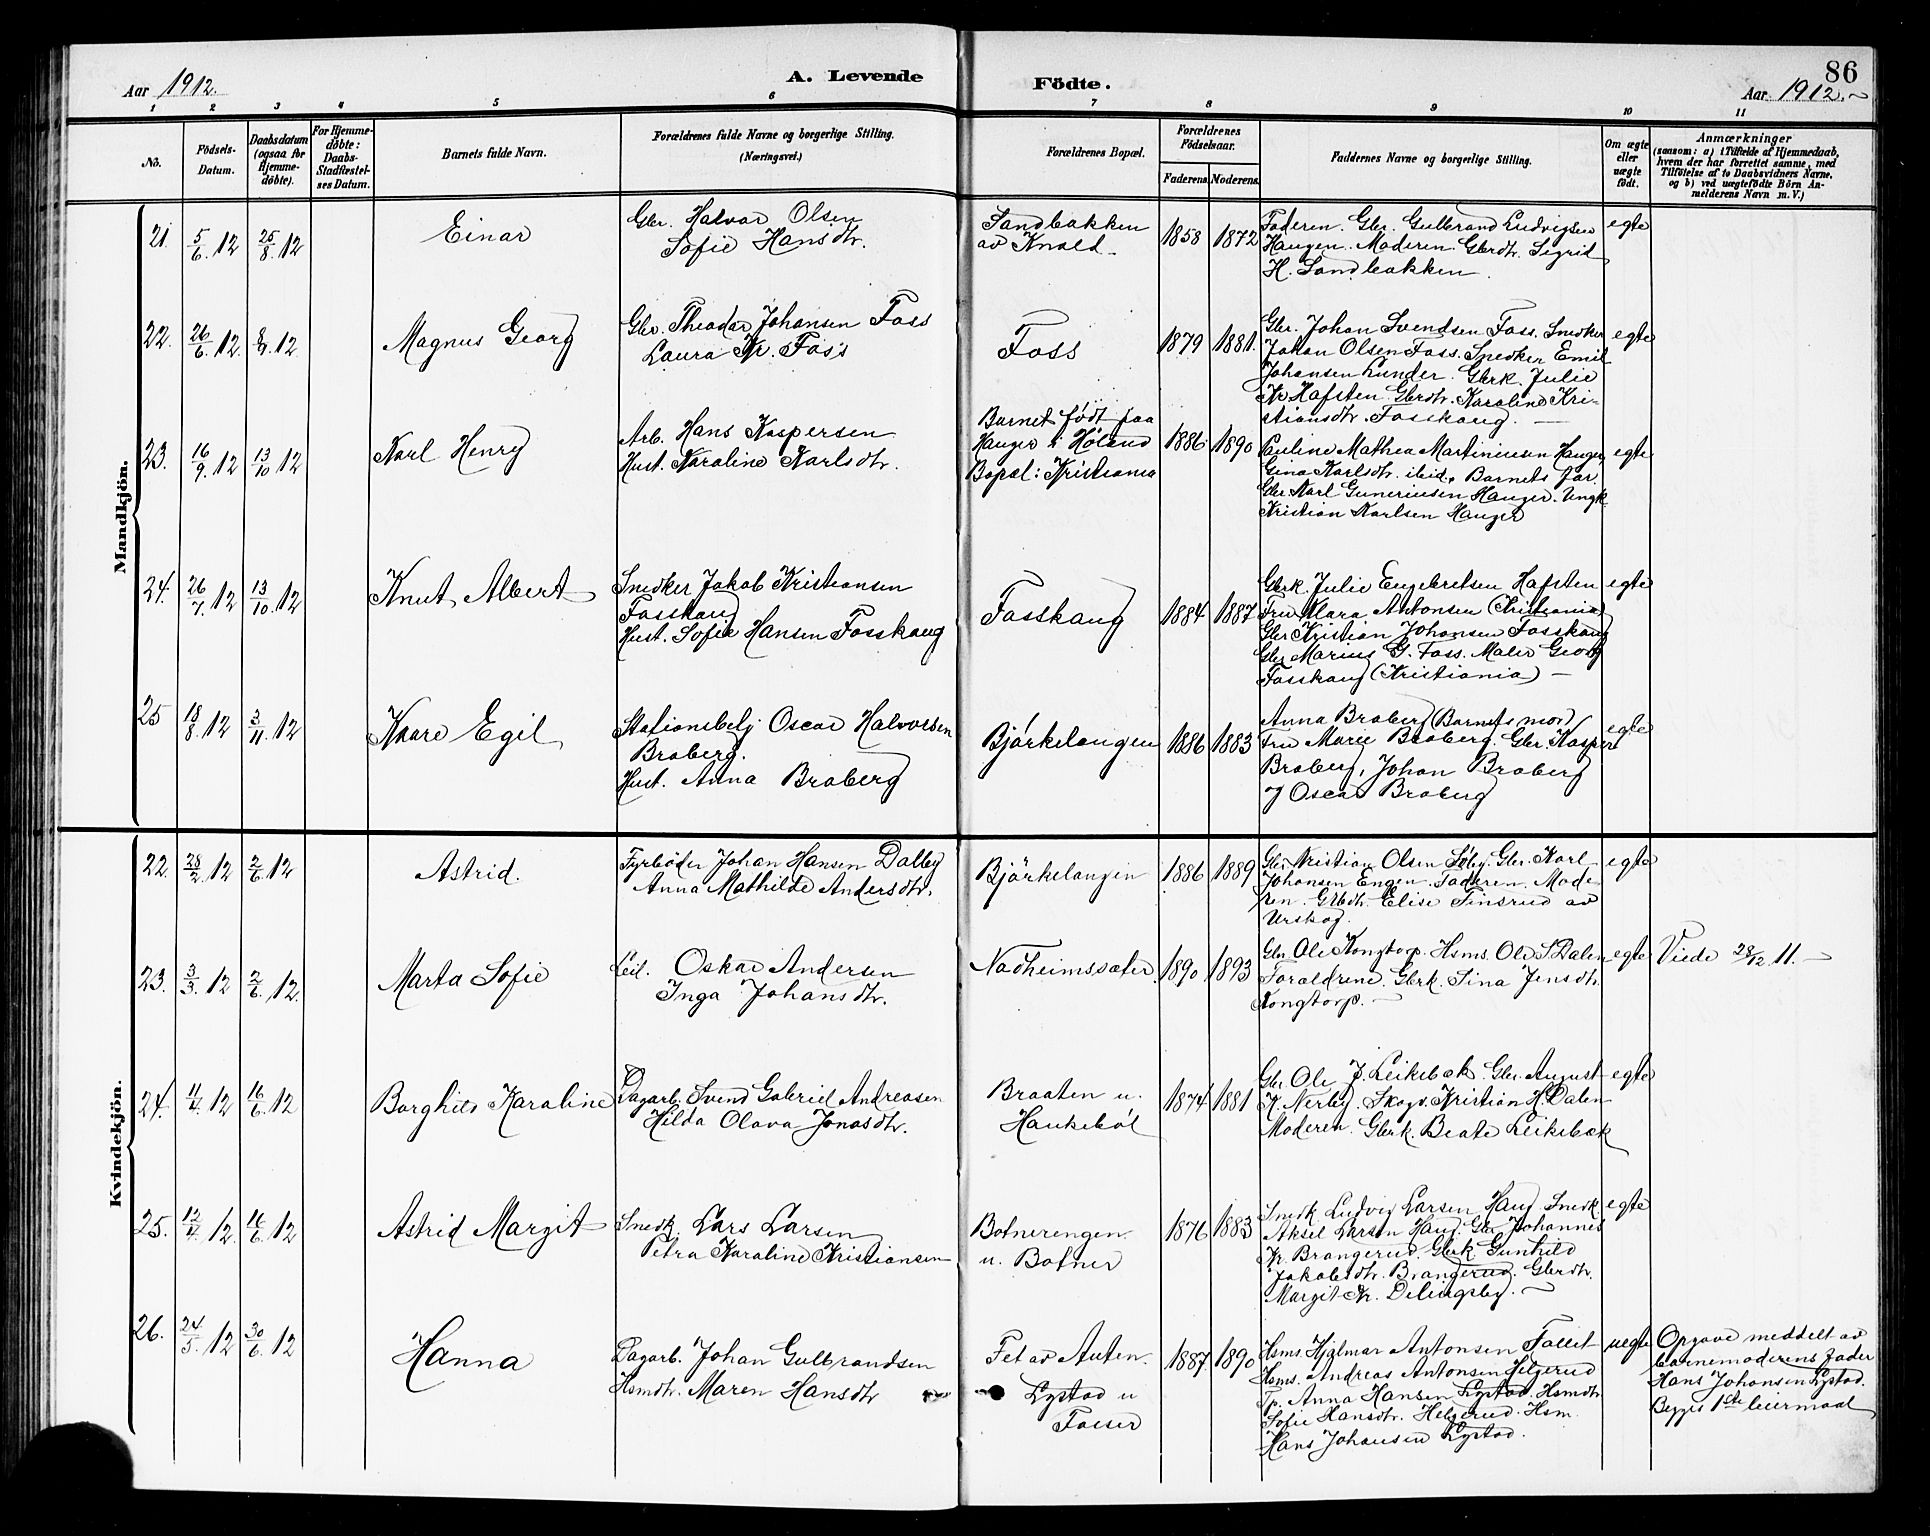 86
Aar 1912.
A. Levende
Födte.
Aar 1912.
1 2 3 4 5 6 7 8 9 10 11
No.
Födsels-
Datum.
Daabsdatum
(ogsaa for
Hjemme-
döbte).
For Hjemme-
döbte:
Daabs-
Stadfæstel-
ses Datum.
Barnets fulde Navn.
Forældrenes fulde Navne og borgerlige Stilling.
(Næringsvei.)
Forældrenes Bopæl.
Forældrenes
Födselsaar.
Faderens. Moderens.
Faddernes Navne og borgerlige Stilling.
Om ægte
eller
uægte
födt.
Anmærkninger
(saasom: a) i Tilfælde af Hjemmedaab,
hvem der har forrettet samme, med
Tilföielse af to Daabsvidners Navne,
og b) ved uægtefödte Börn An-
melderens Navn m. V.)
Mandkjön.
21. 5/6 12 25/8 12
Einar
Gbr. Halvar Olsen
Sofie Hansdtr.
Sandbakken
av Knold.
1858 1872
Faderen. Gbr. Gulbrand Ludvigsen
Haugen. Moderen. Gbrdtr. Sigrid
H. Sandbakken.
egte
22. 26/6 12. 8/9 12
Magnus Georg
Gbr. Theodor Johansen Foss
Laura Kr. Foss
Foss
1879 1881.
Gbr. Johan Svendsen Foss. Snedker
Johan Olsen Foss. Snedker Emil
Johansen Lunder. Gbrk. Julie
Kr. Hafsten. Gbrdtr. Karoline Kri-
stiansdtr. Fosskaug.
egte
23. 16/9 12 13/10 12
Karl Henry
Arb. Hans Kaspersen
Hust. Karoline Karlsdtr.
Barnet født paa
Hanger i Høland
Bopæl: Kristiania
1886 1890
Pauline Mathea Martiniusen Hanger,
Gina Karlsdtr. ibid. Barnets far.
Gbr. Karl Guneriusen Hanger. Ungk.
Kristian Karlsen Hanger
egte
24. 26/7 12 13/10 12
Knut Albert
Snedker Jakob Kristiansen
Fosskaug
Hust. Sofie Hansen Fosskaug
Fosskaug
1884 1887
Gbrk. Julie Engebretsen Hafsten
Fru Klara Antonsen (Kristiania)
Gbr. Kristian Johansen Fosskaug
Gbr. Marius G. Foss. Maler Georg
Fosskaug (Kristiania)
egte
25 18/8 12 3/11 12
Kaare Egil
Stationsbetj Oscar Halvorsen
Broberg.
Hust. Anna Broberg
Bjørkelangen
1886 1883
Anna Broberg (Barnets mor)
Fru Marie Broberg. Gbr. Kasper
Broberg, Johan Broberg
og Oscar Broberg
egte
Kvindekjön.
22. 28/2 12 2/6 12
Astrid.
Fyrbøder Johan Hansen Dalby
Anna Mathilde Andersdtr.
Bjørkelangen
1886 1889
Gbr. Kristian Olsen Søby. Gbr. Karl
Johansen Engen. Faderen. Mode-
ren. Gbrdtr. Elise Finsrud av
Urskog.
egte
23. 3/3 12 2/6 12.
Marta Sofie
Leil. Oskar Andersen
Inga Johansdtr.
Nadheimssæter.
1890 1893
Gbr. Ole Kongtorp. Hsms. Ole S. Dalen
Forældrene. Gbrk. Sina Jensdtr.
Kongtorp.
egte
Viede 28/12 11.
24. 11/4 12 16/6 12
Borghild Karoline
Dagarb. Svend Gabriel Andreasen
Hilda Olava Jonasdtr.
Braaten u.
Haukebøl
1874 1881
Gbr. Ole J. Leikebæk. Gbr. August
K. Nerby. Skogv. Kristian H. Dalen
Moderen. Gbrk. Beate Leikebæk
egte
25. 12/4 12. 16/6 12
Astrid Margit
Snedk. Lars Larsen
Petra Karoline Kristiansen
Botnerengen
u. Botner
1876 1883
Snedk Ludvig Larsen Haug Snedk.
Aksel Larsen Haug. Gbr Johannes
Kr. Brangerud. Gbrk Gunhild
Jakobsdtr. Brangerud. Gbrdtr.
Margit Kr. Delingsby.
egte
26. 24/5. 12 30/6 12
Hanna
Dagarb. Johan Gulbrandsen
Hsmdtr. Maren Hansdtr
Fet av Auten.
Lystad u
Fosser
1887. 1890
Hsms Hjalmar Antonsen Fallet
Hsms. Andreas Antonsen Helgerud
Tp. Anna Hansen Lystad. Hsmdtr.
Sofie Hansdtr. Helgerud. Hsm.
Hans Johansen Lystad.
uegte
Opgave meddelt av
barnemoderens fader
Hans Johansen Lystad.
Begges 1ste leiermaal